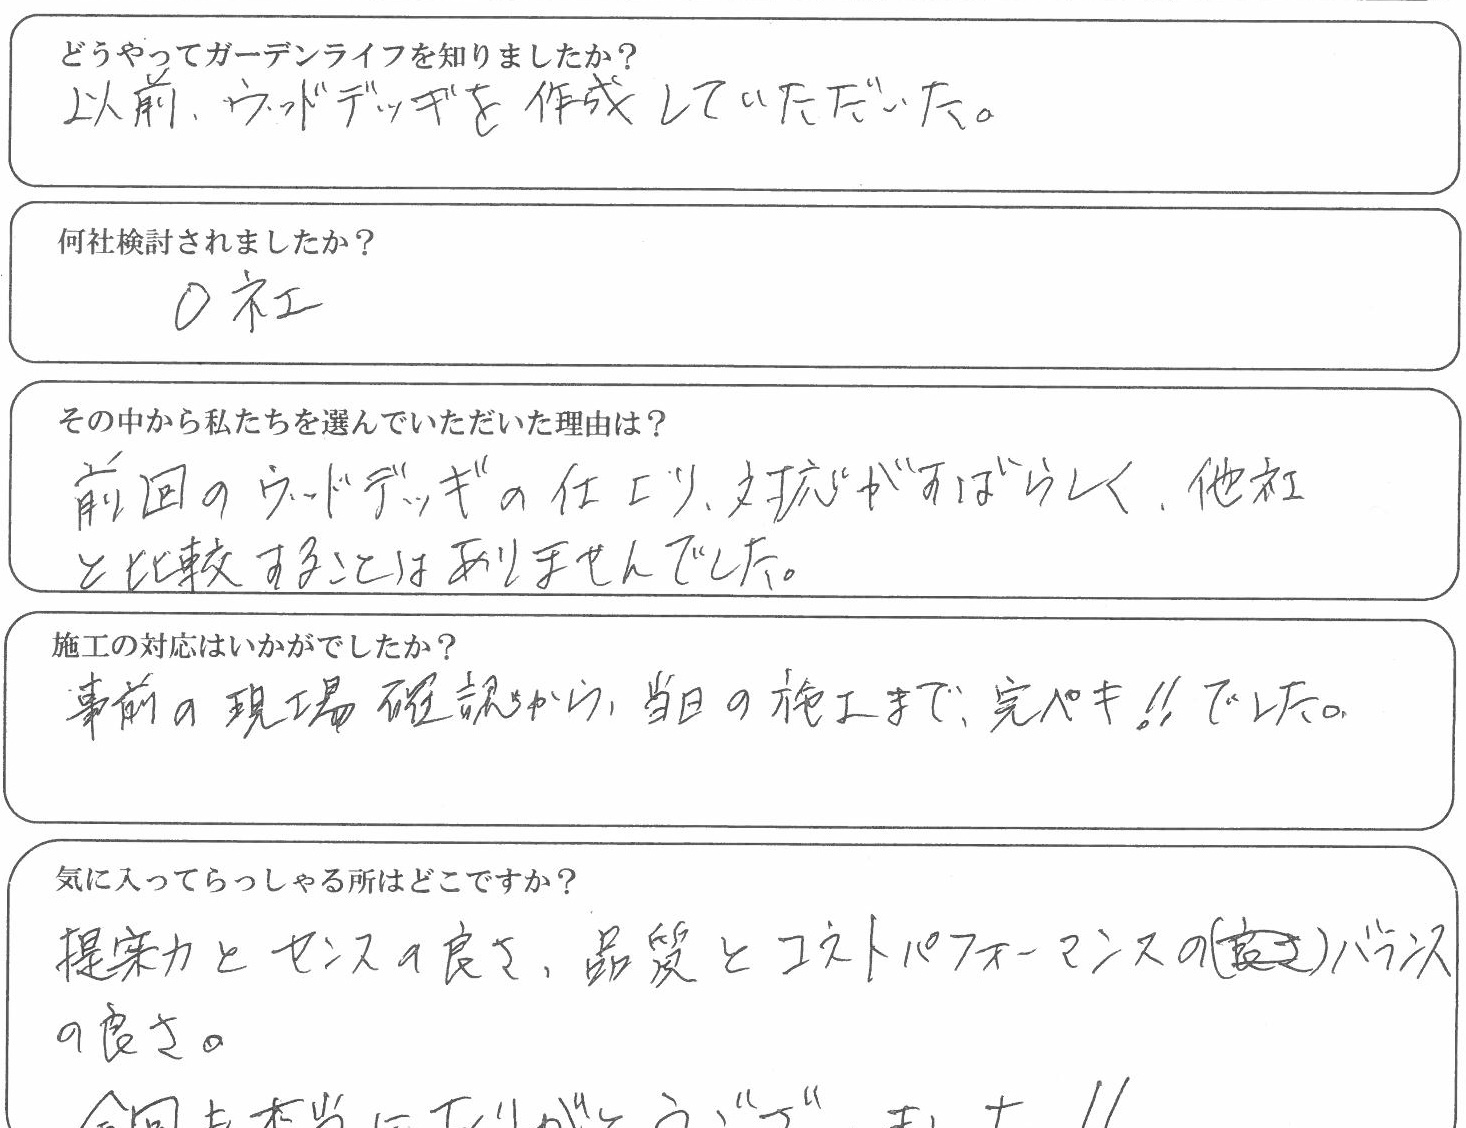 どうやってガーデンライフを知りましたか？
以前、ウッドデッギを作成していただいた。
何社検討されましたか？
0社
その中から私たちを選んでいただいた理由は？
前回のウッドデッギの仕上り、対応がすばらしく、他社
と比較することはありませんでした。
施工の対応はいかがでしたか？
事前の現場確認から、当日の施工まで、完ペキ!!でした。
気に入ってらっしゃる所はどこですか？
提案力とセンスの良さ、品質とコストパフォーマンスの(良さ)バランス
の良さ。
今回も本当にありがとうございました!!